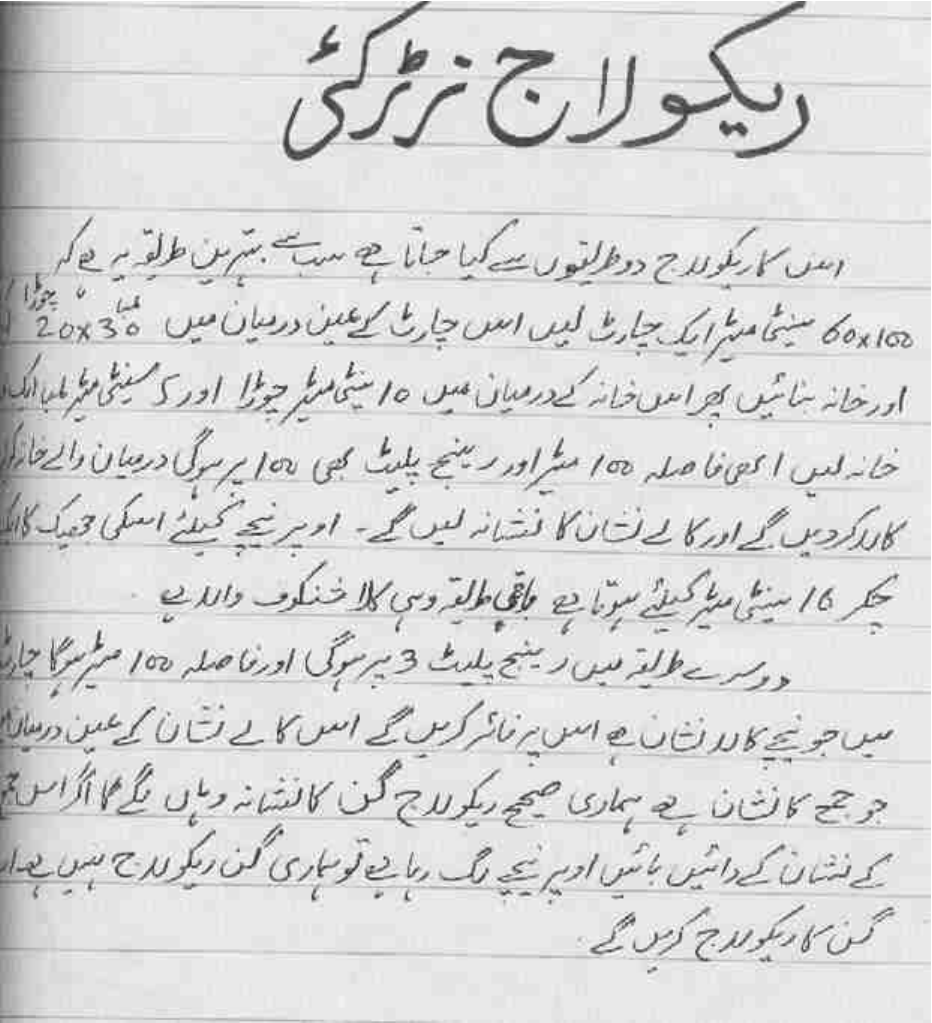 ریکولاج نرڑکئی
اس کا ریکولاج دو طریقوں سے کیا جاتا ہے سب سے بہترین طریقہ یہ ہے کہ
60x100 سینٹی میٹر ایک چارٹ لیں اس چارٹ کے عین درمیان میں 20x30 لمبا چوڑا
اور خانہ بنائیں پھر اس خانہ کے درمیان میں 10 سینٹی میٹر چوڑا اور 5 سینٹی میٹر لمبا ایک
خانہ لیں ابھی فاصلہ 100 میٹر اور رینج پلیٹ بھی 100 پر ہوگی درمیان والے خانہ کو
کالا کر دیں گے اور کالے نشان کا نشانہ لیں گے۔ اوپر نیچے کیلئے اسکی کا ایک
چکر 16 سینٹی میٹر کیلئے ہوتا ہے باقی طریقہ وہی کلاشنکوف والا ہے
دوسرے طریقہ میں رینج پلیٹ 3 پر ہوگی اور فاصلہ 100 میٹر ہوگا چارٹ
میں جو نیچے کالا نشان ہے اس پر فائر کریں گے اس کالے نشان کے عین درمیان
جو جمع کا نشان ہے ہماری صحیح ریکولاج گن کا نشانہ وہاں لگے گا اگر اس جمع
کے نشان کے دائیں بائیں اوپر نیچے لگ رہا ہے تو ہماری گن ریکولاج نہیں ہے
گن کا ریکولاج کریں گے